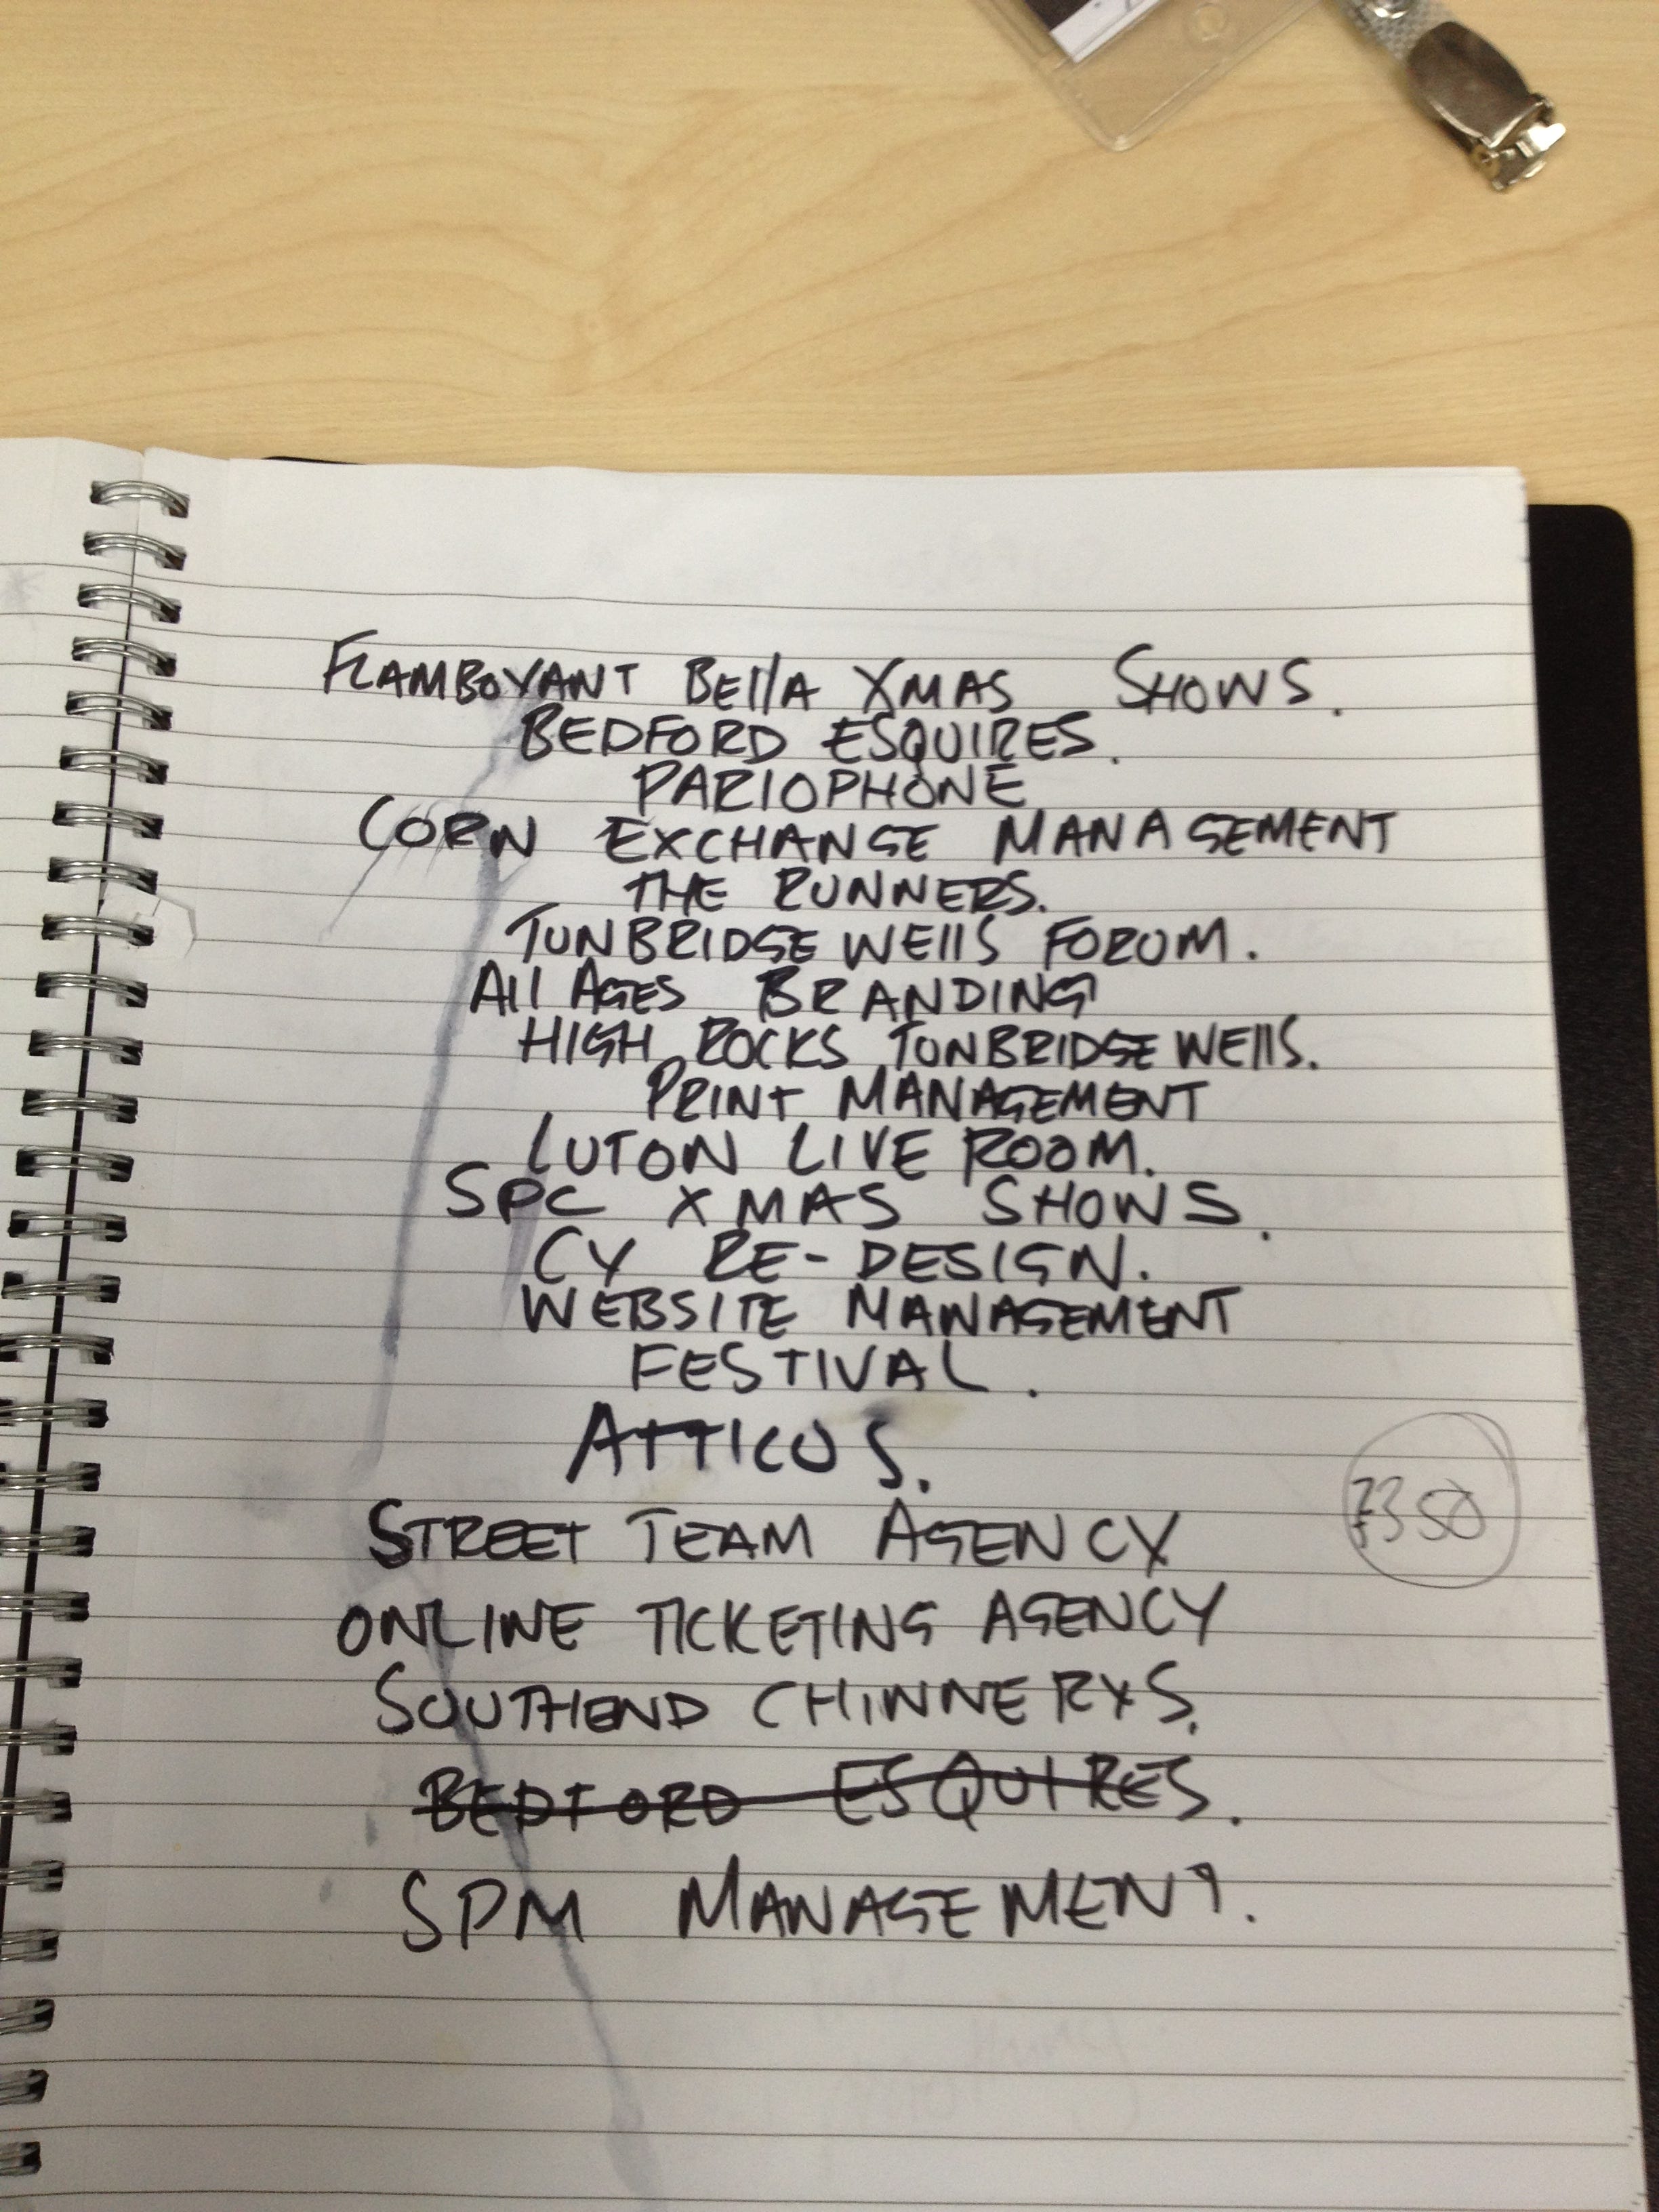 FLAMBOYANT BEllA XMAS SHOWS.
BEDFORD ESQUIRES.
PARlOPHONE
CORN EXCHANGE MANAGEMENT
THE RUNNERS.
TUNBRIDGE WEllS FORUM.
All AGES BRANDING
HIGH ROCKS TUNBRIDGE WEllS.
PRINT MANAGEMENT
LUTON LIVE ROOM.
SPC XMAS SHOWS.
CY RE-DESIGN.
WEBSITE MANAGEMENT
FESTIVAL.
ATTICUS.
STREET TEAM AGENCY
£350
ONLINE TICKETING AGENCY
SOUTHEND CHINNERYS.
BEDFORD ESQUIRES.
SPM MANAGEMENT.